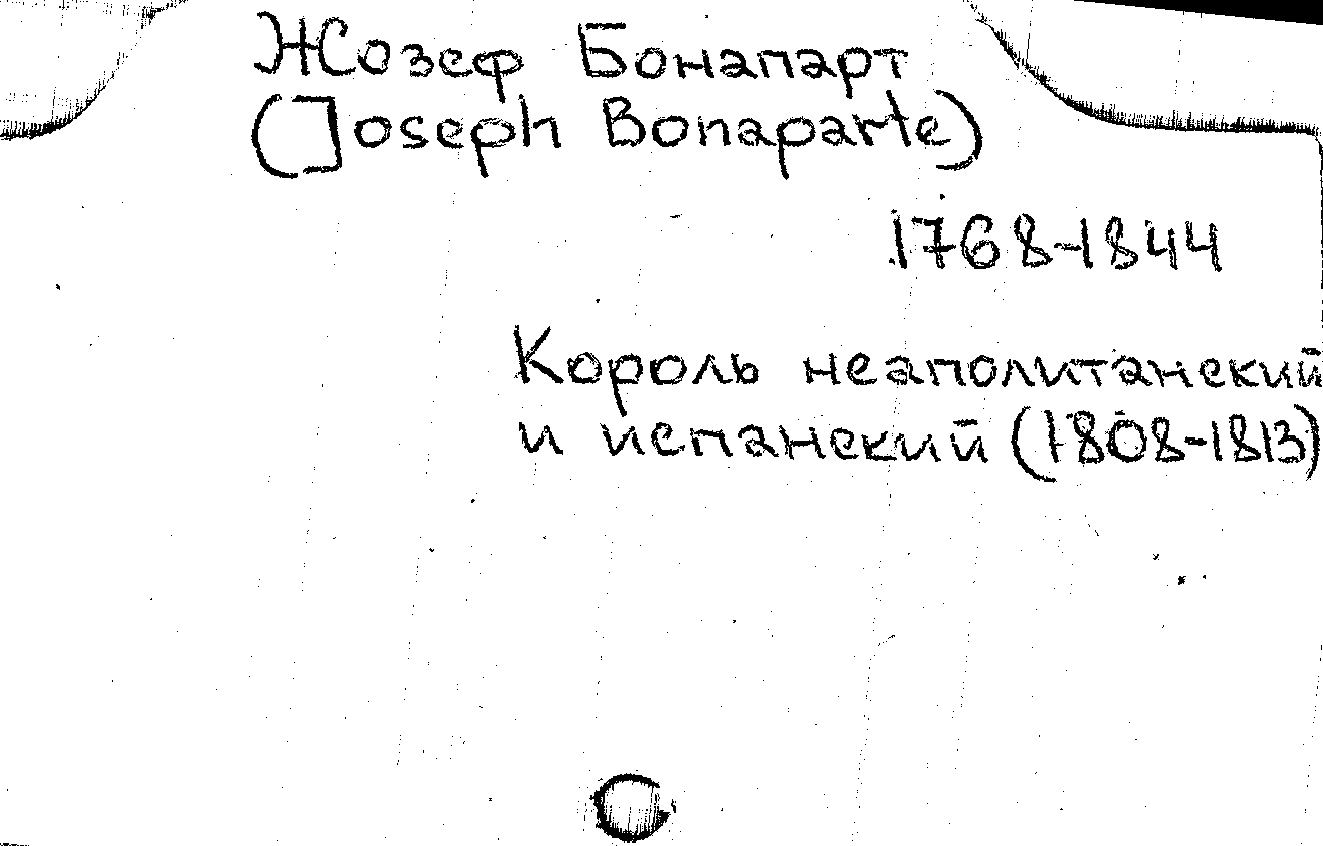 Жозеф Бонапарт
(Joseph Bonaparte)
1768-1844
Король неаполитанский
и испанский (1808-1813)